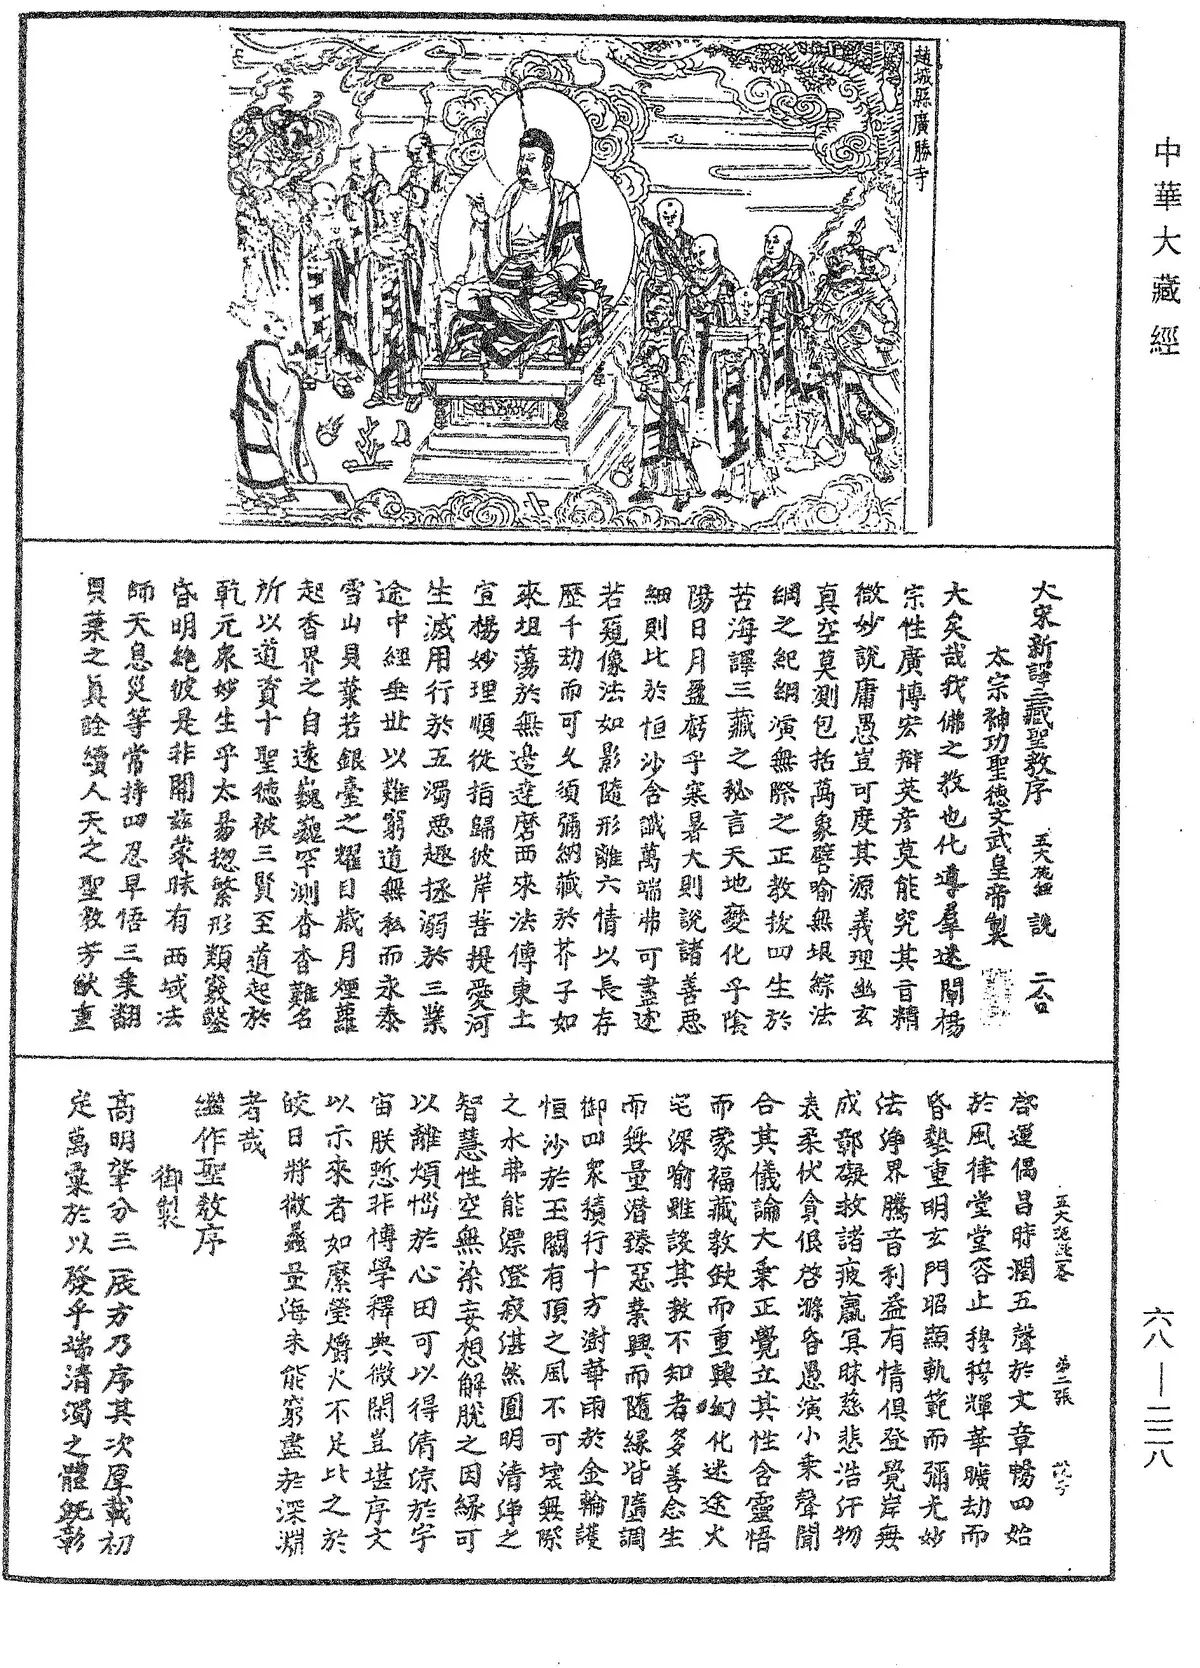 中華大藏經
趙城縣廣勝寺
大宋新譯三藏聖教序
太宗神功聖德文武皇帝製
大矣哉我佛之教也化導羣迷闡楊
宗性廣博宏辯英彦莫能究其旨精
微妙說庸愚豈可度其源義理幽玄
真空莫測包括萬象譬喻無垠綜法
網之紀綱演無際之正教拔四生於
苦海譯三藏之秘言天地變化乎陰
陽日月盈虧乎寒暑大則說諸善惡
細則比於恒沙含識萬端弗可盡述
若窺像法如影隨形離六情以長存
歷千劫而可久須彌納藏於芥子如
來坦蕩於無邊達磨西來法傳東土
宣楊妙理順從指歸彼岸菩提愛河
生滅用行於五濁惡趣拯溺於三業
途中經垂世以難窮道無私而永泰
雪山貝葉若銀臺之耀目歲月煙蘿
起香界之自遠巍巍罕測杳杳難名
所以道資十聖德被三賢至道起於
乾元衆妙生乎太易揔繁形類竅鑿
昏明絶彼是非開兹蒙昧有西域法
師天息災等常持四忍早悟三乘翻
貝葉之真詮續人天之聖教芳猷重
五大施經三卷 第二張
啓運偶昌時潤五聲於文章暢四始
於風律堂堂容止穆穆輝華曠劫而
昏墊重明玄門昭顯軌範而彌光妙
法淨界騰音利益有情俱登覺岸無
成鄣礙救諸疲羸冥昧慈悲浩汗物
表柔伏貪佷啓滌昏愚演小乘聲聞
合其儀論大乘正覺立其性含靈悟
而蒙福藏教缺而重興幻化迷途火
宅深喻雖設其教不知者多善念生
而無量潛臻惡業興而隨緣皆墮調
御四衆積行十方澍華雨於金輪護
恒沙於玉闕有頂之風不可壞無際
之水弗能漂澄寂湛然圓明清淨之
智慧性空無染妄想解脫之因緣可
以離煩惱於心田可以得清涼於宇
宙朕慙非博學釋典微閑豈堪序文
以示來者如縻瑩爝火不足比之於
皎日將微蠡量海未能窮盡於深淵
者哉
繼作聖教序
御製
高明肇分三辰方乃序其次厚載初
定萬彙於以發乎端清濁之體旣彰
六八—二二八